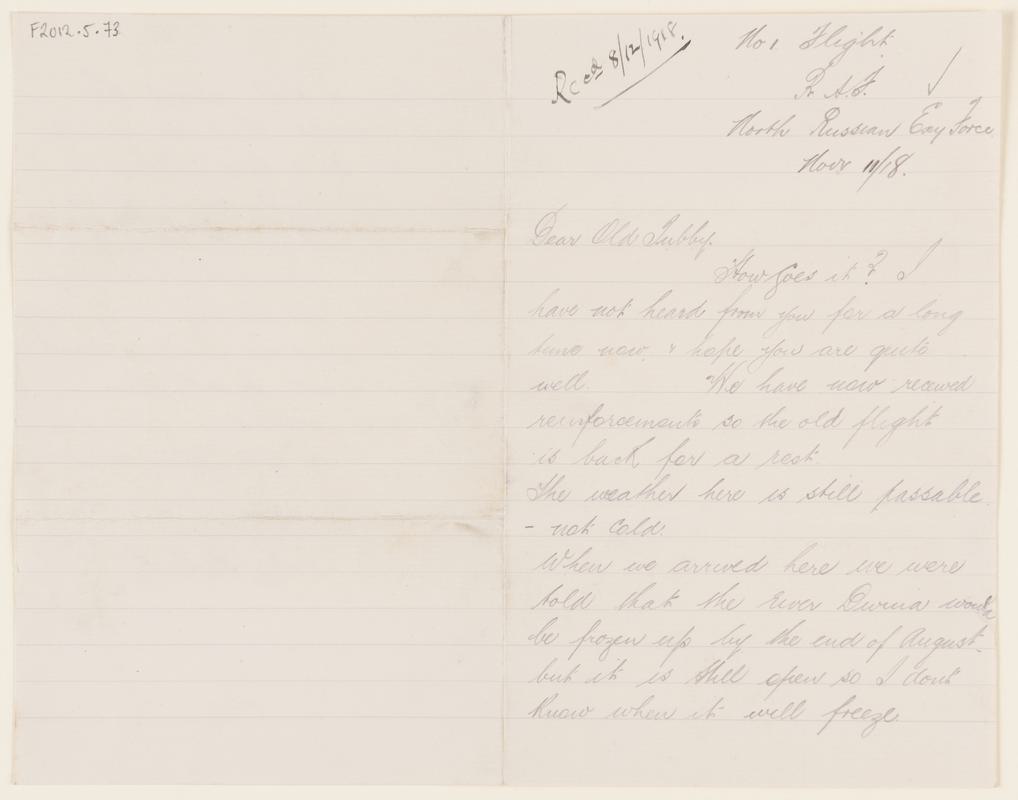 F2012.5.73
Rcced 8/12/1918.
No 1 Flight.
R.A.F.
North Russian Exy Force
Novr 11/18.
Dear Old Tubby.
How goes it? I
have not heard from you for a long
time now, & hope you are quite
well. We have now received
reinforcements so the old flight
is back for a rest.
The weather here is still passable.
- not cold.
When we arrived here we were
told that the River Dwina would
be frozen up by the end of August-
but it is still open so I dont
know when it will freeze.